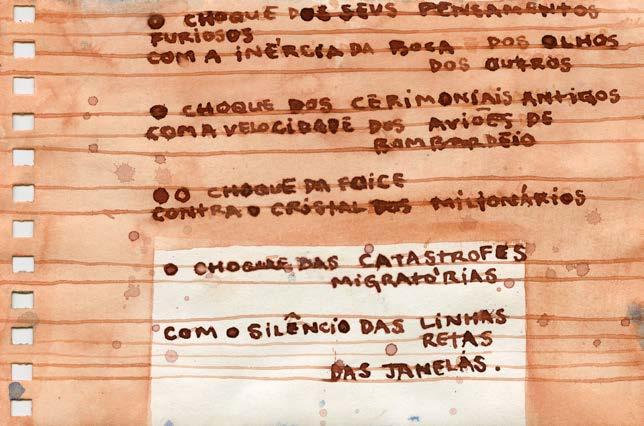 O CHOQUE DOS SEUS PENSAMENTOS
FURIOSOS
COM A INÉRCIA DA BOCA DOS OLHOS
DOS OUTROS
O CHOQUE DOS CERIMONIAIS ANTIGOS
COM A VELOCIDADE DOS AVIÕES DE
BOMBARDEIO
O O CHOQUE DA FOICE
CONTRA O CRISTAL DOS MILIONÁRIOS
O CHOQUE DAS CATASTROFES
MIGRATÓRIAS
COM O SILÊNCIO DAS LINHAS
RETAS
DAS JANELÁS.